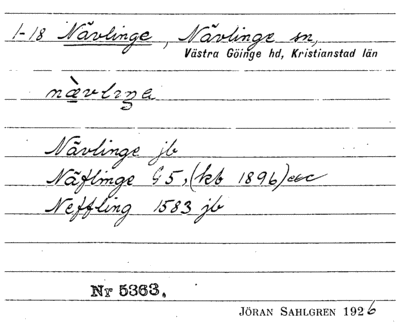 1-18 Nävlinge, Nävlinge sn,
Västra Göinge hd, Kristianstad län
nævlıŋa
Nävlinge jb
Näflinge G5, (kb 1896) etc
Neffling 1583 jb
Nr 5363.
JÖRAN SAHLGREN 1926